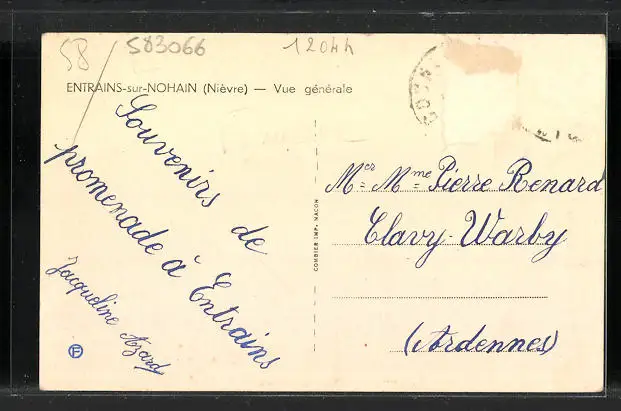 58
583066
12044
ENTRAINS-sur-NOHAIN (Nièvre) — Vue générale
Souvenirs de
promenade à Entrains
Jacqueline Azard
COMBIER IMP. MACON
Mer Mme Pierre Renard
Clavy-Warby
(Ardennes)